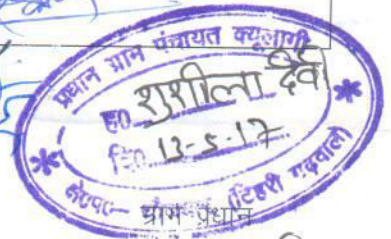 प्रधान ग्राम पंचायत क्यूलागी
ह0 शुशीला देवी
दि0 13-5-17
(टिहरी गढ़वाल)
ग्राम प्रधान